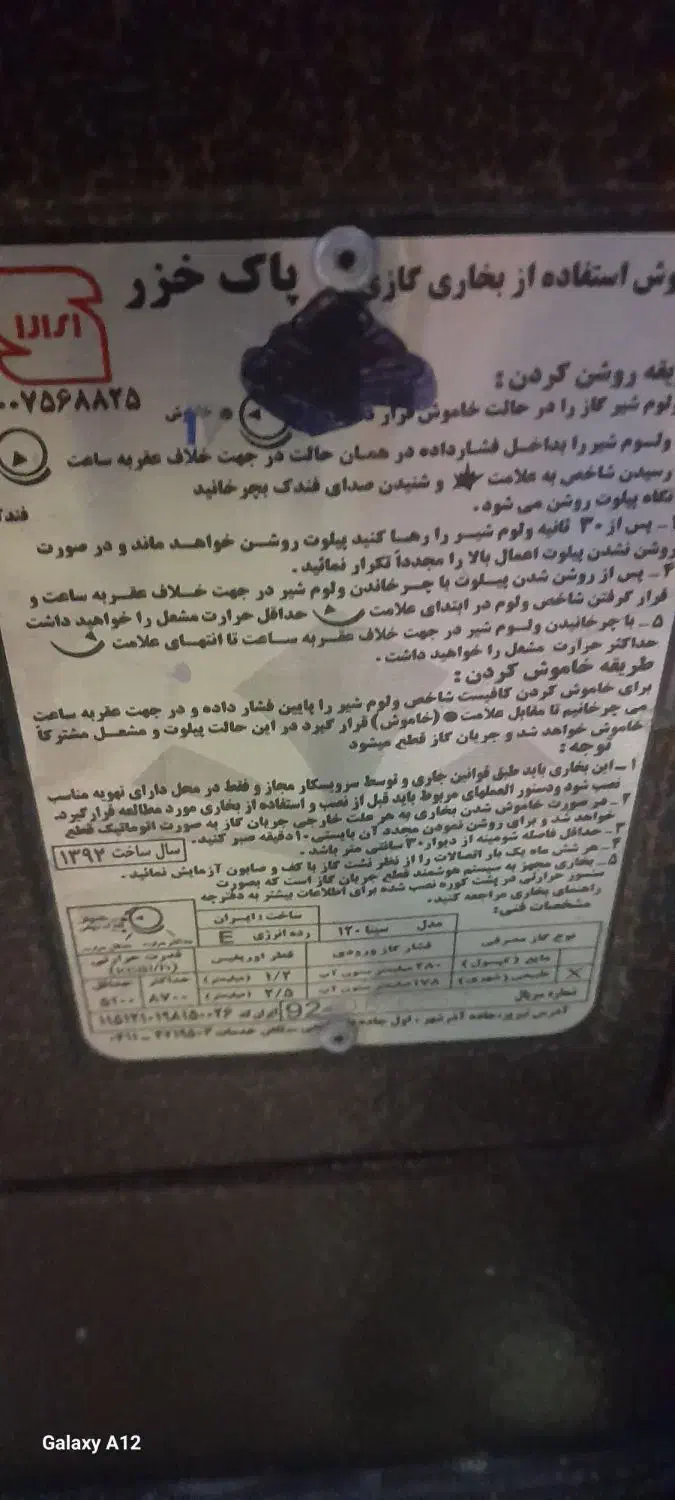 وش استفاده از بخاری گازی پاک خزر
۰۰۷۵۶۸۸۲۵
یقه روشن کردن :
ولوم شیر گاز را در حالت خاموش قرار
ولوم شیر را بداخل فشارداده در همان حالت در جهت خلاف عقربه ساعت
رسیدن شاخص به علامت و شنیدن صدای فندک بچرخانید
نگاه پیلوت روشن می شود .
فندک
پس از ۳۰ ثانیه ولوم شیر را رها کنید پیلوت روشن خواهد ماند و در صورت
روشن نشدن پیلوت اعمال بالا را مجدداً تکرار نمائید .
۴_ پس از روشن شدن پیلوت با چرخاندن ولوم شیر در جهت خلاف عقربه ساعت و
قرار گرفتن شاخص ولوم در ابتدای علامت حداقل حرارت مشعل را خواهید داشت
۵_ با چرخانیدن ولوم شیر در جهت خلاف عقربه ساعت تا انتهای علامت
حداکثر حرارت مشعل را خواهید داشت .
طریقه خاموش کردن :
برای خاموش کردن کافیست شاخص ولوم شیر را پایین فشار داده و در جهت عقربه ساعت
می چرخانیم تا مقابل علامت ● (خاموش) قرار گیرد در این حالت پیلوت و مشعل مشترکاً
خاموش خواهد شد و جریان گاز قطع میشود
توجه :
۱_ این بخاری باید طبق قوانین جاری و توسط سرویسکار مجاز و فقط در محل دارای تهویه مناسب
نصب شود و دستور العملهای مربوط باید قبل از نصب و استفاده از بخاری مورد مطالعه قرار گیرد.
۲_ در صورت خاموش شدن بخاری به هر علت خارجی جریان گاز به صورت اتوماتیک قطع
خواهد شد و برای روشن نمودن مجدد آن بایستی ۱۰ دقیقه صبر کنید.
۳_ حداقل فاصله شومینه از دیوار ۳۰ سانتی متر باشد .
۴_ هر شش ماه یک بار اتصالات را از نظر نشت گاز با کف و صابون آزمایش نمائید .
۵_ بخاری مجهز به سیستم هوشمند قطع جریان گاز است که بصورت
سنسور حرارتی در پشت کوره نصب شده برای اطلاعات بیشتر به دفترچه
راهنمای بخاری مراجعه کنید.
سال ساخت ۱۳۹۲
مشخصات فنی:
مدل سینا ۱۲۰
ساخت : ایران
رده انرژی E
نوع گاز مصرفی
فشار گاز ورودی
قطر اوریفیس
قدرت حرارتی
(kcal/h)
مایع (کپسول)
۲۸۰ میلیمتر ستون آب
۱/۲ (میلیمتر)
حداکثر حداقل
X طبیعی (شهری)
۱۷۸ میلیمتر ستون آب
۲/۵ (میلیمتر)
۸۷۰۰
شماره سریال
92
ایران کد
آدرس تبریز، جاده آذرشهر ، اول جاده